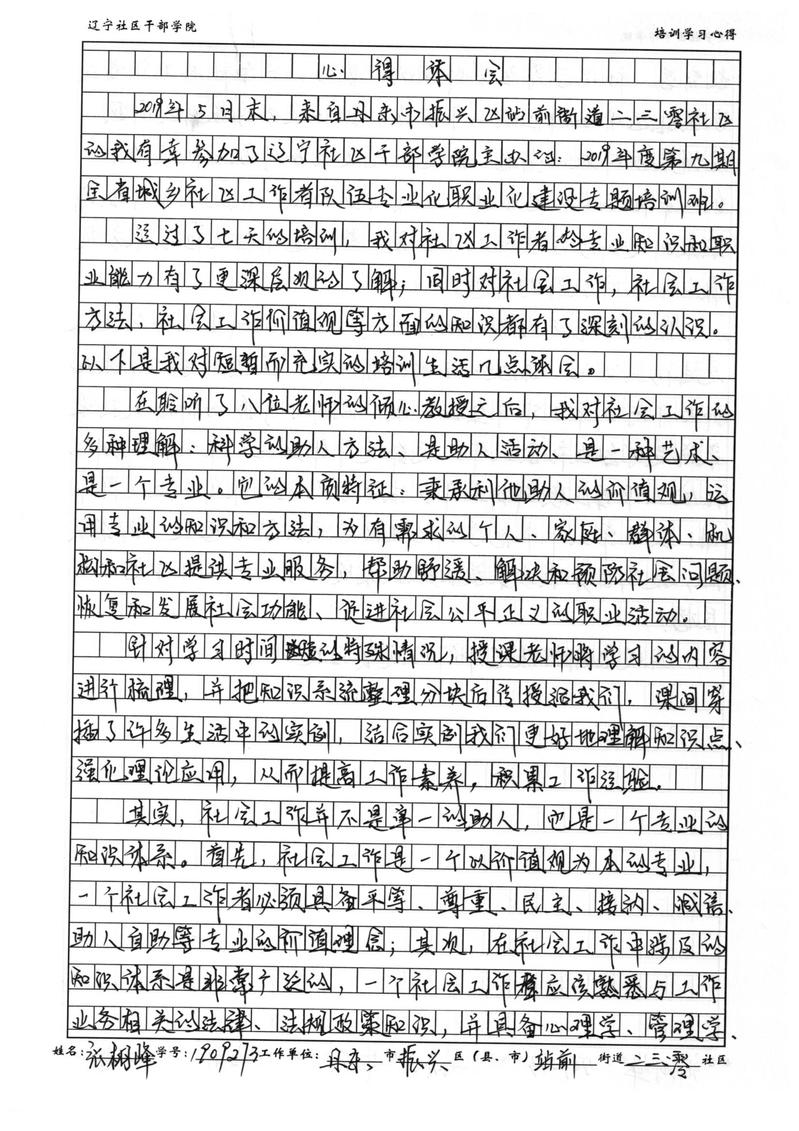 辽宁社区干部学院
培训学习心得
心得体会
2019年5月末，来自丹东市振兴区站前街道二三零社区
的我有幸参加了辽宁社区干部学院主办的：2019年度第九期
全省城乡社区工作者队伍专业化职业化建设专题培训班。
通过了七天的培训，我对社区工作者的专业知识和职
业能力有了更深层次的了解；同时对社会工作，社会工作
方法，社会工作价值观等方面的知识都有了深刻的认识。
以下是我对短暂而充实的培训生活几点体会。
在聆听了八位老师的倾心教授之后，我对社会工作的
多种理解：科学的助人方法、是助人活动、是一种艺术、
是一个专业。它的本质特征：秉承利他助人的价值观，运
用专业的知识和方法，为有需求的个人、家庭、群体、机
构和社区提供专业服务，帮助舒缓、解决和预防社会问题、
恢复和发展社会功能、促进社会公平正义的职业活动。
针对学习时间短的特殊情况，授课老师将学习的内容
进行梳理，并把知识系统整理分块后传授给我们，课间穿
插了许多生活中的实例，结合实例我们更好地理解知识点、
强化理论应用，从而提高工作素养，积累工作经验。
其实，社会工作并不是单一的助人，也是一个专业的
知识体系。首先，社会工作是一个以价值观为本的专业，
一个社会工作者必须具备平等、尊重、民主、接纳、诚信、
助人自助等专业的价值理念；其次，在社会工作中涉及的
知识体系是非常广泛的，一个社会工作者应该熟悉与工作
业务相关的法律、法规政策知识，并具备心理学、管理学、
姓名：张树峰 学号：1909273 工作单位：丹东 市 振兴 区（县、市） 站前 街道 二三零 社区